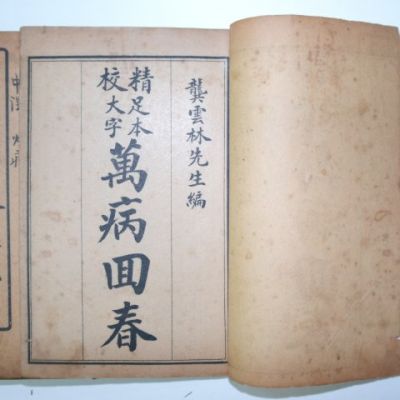 龔雲林先生編
精校足本大字
萬病回春